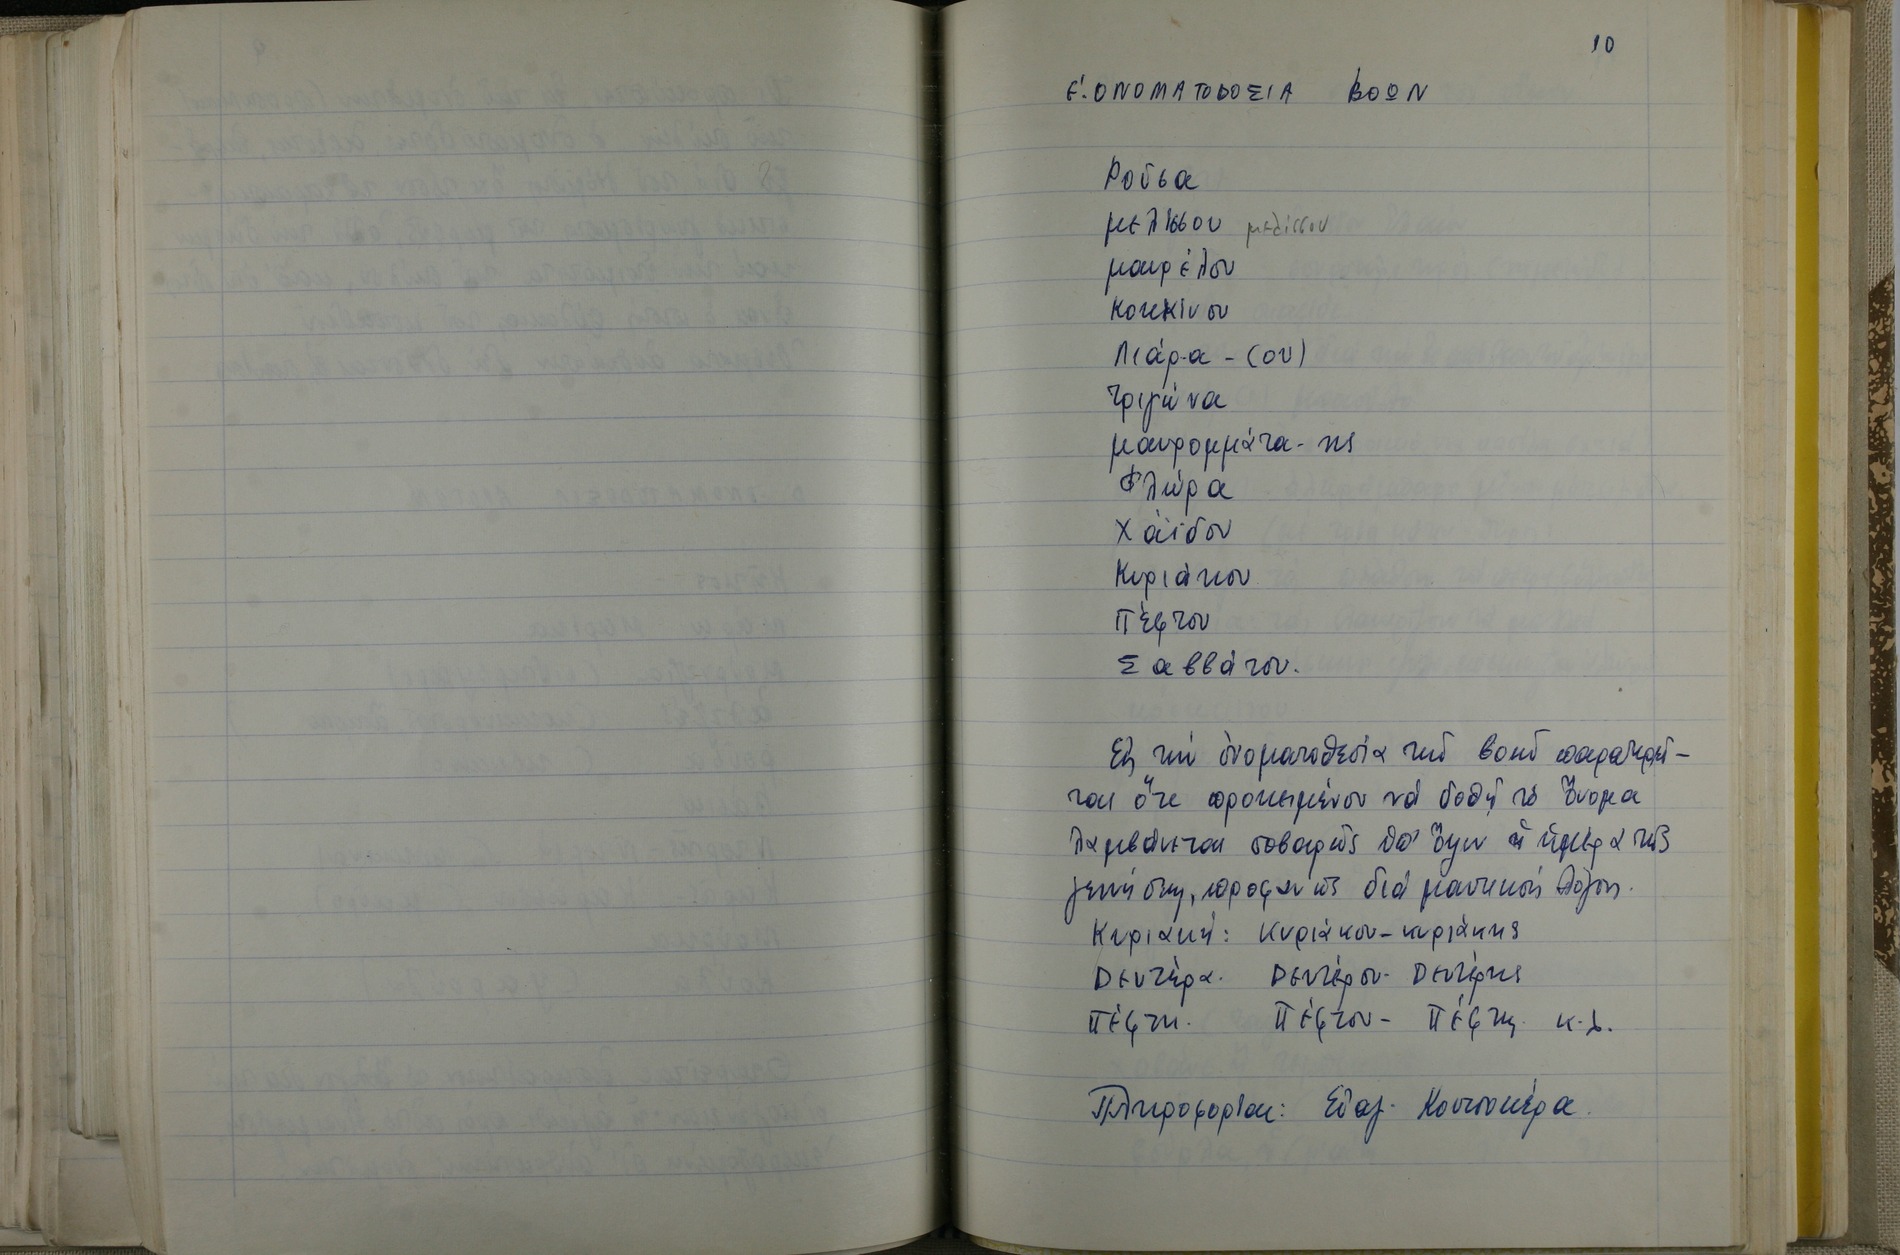 10
Ε'. ΟΝΟΜΑΤΟΔΟΣΙΑ ΒΟΩΝ
Ροῦσα
μελίσσου μελίσσου
μαυρέλου
κοκκίνου
Λιάρα - (ου)
τριγώνα
μαυρομμάτα - ης
Φλώρα
Χάϊδου
Κυριάκου
Πέφτου
Σαββάτου.
Εἰς τήν ὀνοματοθεσία τῶν βοῶν παρατηρεῖ-
ται ὅτι προκειμένου νά δοθῇ τό ὄνομα
λαμβάνεται σοβαρῶς ὑπ' ὄψιν ἡ ἡμέρα τῆς
γεννήσεως, προφανῶς διά μαντικούς λόγους.
Κυριακή: Κυριάκου - κυριάκης
Δευτέρα. Δευτέρου - Δευτέρης
Πέφτη. Πέφτου - Πέφτης κ.λ.
Πληροφορίαι: Εὐαγ. Κουτσοκέρα.